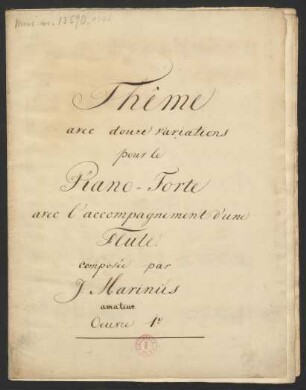 Thême
avec douze variations
pour le
Piano-Forte
avec l'accompagnement d'une
Flute
composée par
J Marinus
amateur
Oeuvre 1r